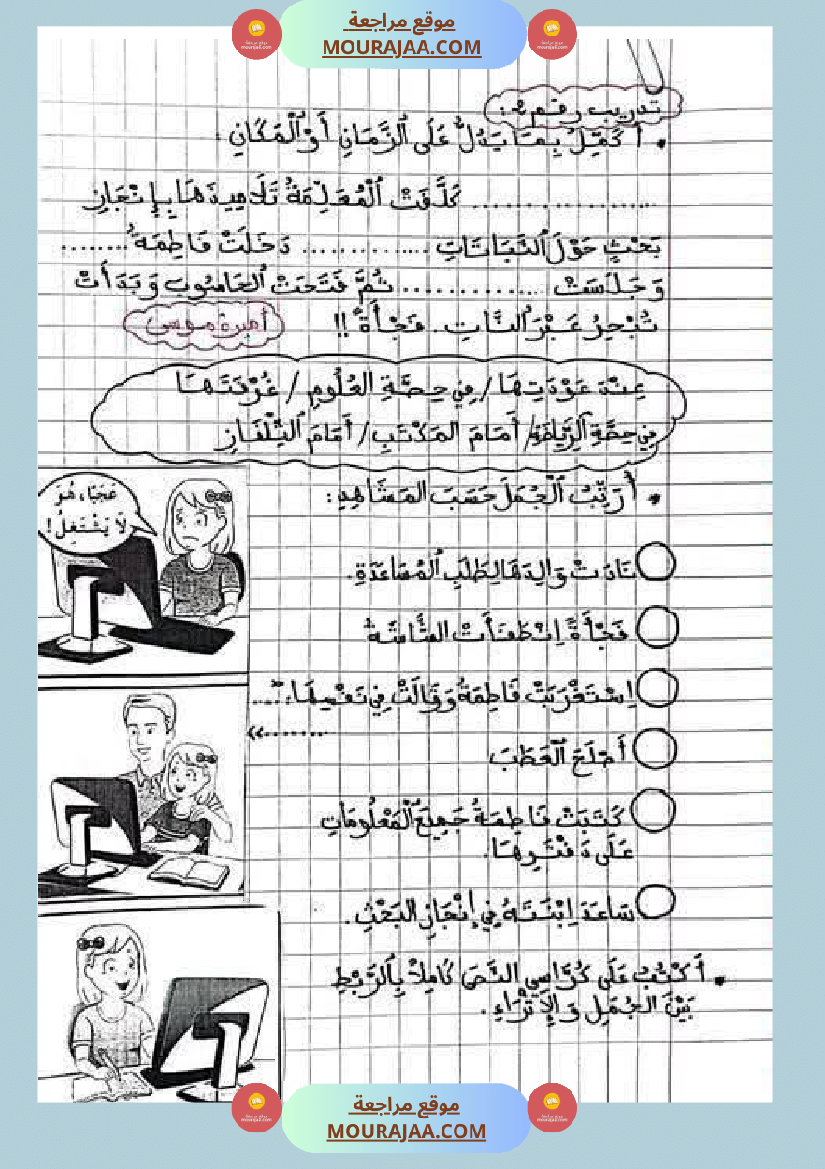 موقع مراجعة
MOURAJAA.COM
تدريب رقم 2:
• أُكَمِّلُ بِمَا يَدُلُّ عَلَى ٱلزَّمَانِ أَوْ ٱلْمَكَانِ :
.................. كَلَّفَتْ ٱلْمُعَلِّمَةُ تَلَامِيذَهَا بِإِنْجَازِ
بَحْثٍ حَوْلَ ٱلنَّبَاتَاتِ ............... دَخَلَتْ فَاطِمَةُ ........
وَجَلَسَتْ ............... ثُمَّ فَتَحَتْ ٱلحَاسُوبَ وَبَدَأَتْ
تُبْحِرُ عَبْرَ ٱلنَّاتِ. فَجْأَةً !!
أميرة موسى
عِنْدَ عَوْدَتِهَا / فِي حِصَّةِ العُلُومِ / غُرْفَتَهَا
فِي حِصَّةِ ٱلرِّيَاضَةِ / أَمَامَ المَكْتَبِ / أَمَامَ ٱلتِّلْفَازِ
• أُرَتِّبُ ٱلْجُمَلَ حَسَبَ المَشَاهِدِ :
عَجَبًا، هُوَ
لَا يَشْتَغِلُ!
نَادَتْ وَالِدَهَا لِطَلَبِ ٱلْمُسَاعَدَةِ.
فَجْأَةً اِنْطَفَأَتْ الشَّاشَةُ
اِسْتَغْرَبَتْ فَاطِمَةُ وَقَالَتْ فِي نَفْسِهَا: "....
.......»
أَصْلَحَ ٱلْعَطَبَ
كَتَبَتْ فَاطِمَةُ جَمِيعَ ٱلْمَعْلُومَاتِ
عَلَى دَفْتَرِهَا.
سَاعَدَ اِبْنَتَهُ فِي إِنْجَازِ البَحْثِ.
• أَكْتُبُ عَلَى كُرَّاسِي النَّصَّ كَامِلاً بِٱلرَّبْطِ
بَيْنَ الجُمَلِ وَالإِثْرَاءِ.
موقع مراجعة
MOURAJAA.COM